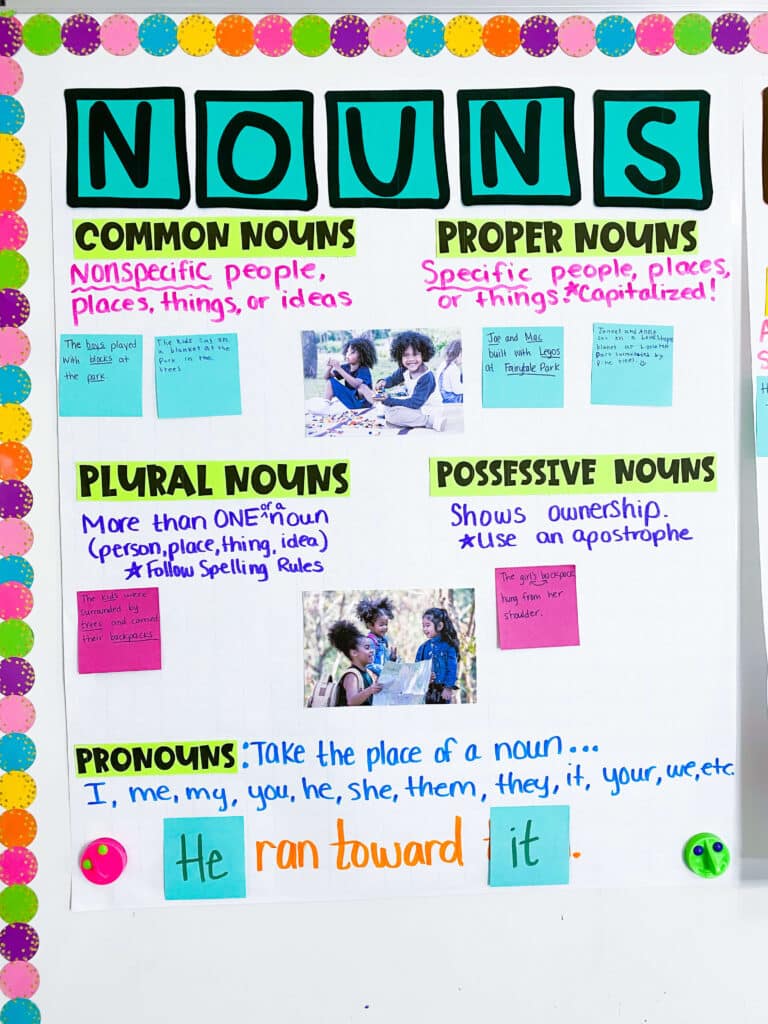 NOUNS
COMMON NOUNS
Nonspecific people,
places, things, or ideas
The boys played
with blocks at
the park.
The kids sat on
a blanket at the
park in the
trees.
PROPER NOUNS
Specific people, places,
or things. *Capitalized!
Joe and Mac
built with Legos
at Fairytale Park
and
on a
blanket at
Park surrounded by
Pine trees.
PLURAL NOUNS
More than ONE of a noun
(person, place, thing, idea)
*Follow Spelling Rules
The kids were
surrounded by
trees and carried
their backpacks
POSSESSIVE NOUNS
Shows ownership.
*Use an apostrophe
The girl's backpack
hung from her
shoulder.
PRONOUNS: Take the place of a noun...
I, me, my, you, he, she, them, they, it, your, we, etc.
He ran toward it.